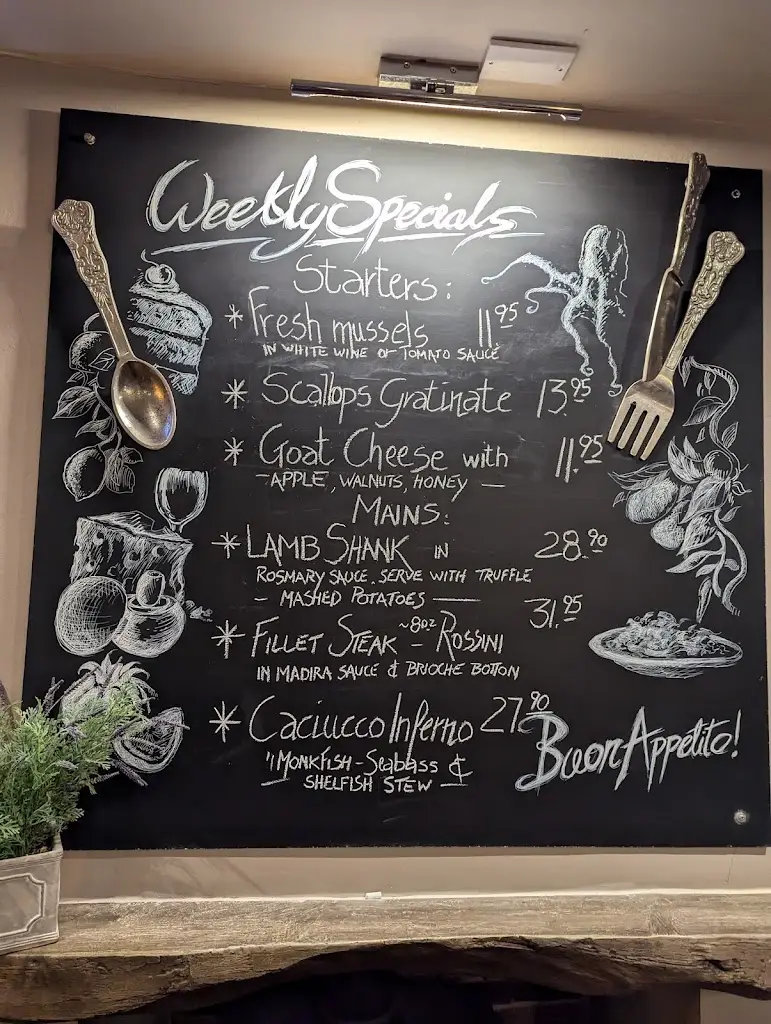 Weekly Specials
Starters:
* Fresh mussels 11.95
IN WHITE WINE OF TOMATO SAUCE
* Scallops Gratinate 13.95
* Goat Cheese with 11.95
- APPLE, WALNUTS, HONEY -
MAINS:
* LAMB SHANK IN 28.90
ROSMARY SAUCE. SERVE WITH TRUFFLE
- MASHED POTATOES -
* FILLET STEAK ~8oz - ROSSINI 31.95
IN MADIRA SAUCE & BRIOCHE BOTTON
* Caciucco Inferno 27.90
"MONKFISH - Seabass &
SHELFISH STEW -
Buon Appetito!